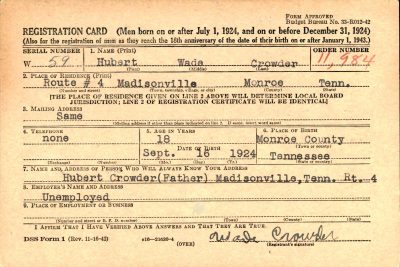 FORM APPROVED
Budget Bureau No. 33-R012-42
REGISTRATION CARD (Men born on or after July 1, 1924, and on or before December 31, 1924)
(Also for the registration of men as they reach the 18th anniversary of the date of their birth on or after January 1, 1943.)
SERIAL NUMBER 1. NAME (Print) ORDER NUMBER
W 59 Hubert Wade Crowder 11,984
(First) (Middle) (Last)
2. PLACE OF RESIDENCE (Print)
Route # 4 Madisonville Monroe Tenn.
(Number and street) (Town, township, village, or city) (County) (State)
[THE PLACE OF RESIDENCE GIVEN ON LINE 2 ABOVE WILL DETERMINE LOCAL BOARD
JURISDICTION; LINE 2 OF REGISTRATION CERTIFICATE WILL BE IDENTICAL]
3. MAILING ADDRESS
Same
[Mailing address if other than place indicated on line 2. If same, insert word same]
4. TELEPHONE 5. AGE IN YEARS 6. PLACE OF BIRTH
none 18 Monroe County
DATE OF BIRTH (Town or county)
Sept. 16 1924 Tennessee
(Exchange) (Number) (Mo.) (Day) (Yr.) (State or country)
7. NAME AND ADDRESS OF PERSON WHO WILL ALWAYS KNOW YOUR ADDRESS
Hubert Crowder(Father) Madisonville,Tenn. Rt. 4
8. EMPLOYER'S NAME AND ADDRESS
Unemployed
9. PLACE OF EMPLOYMENT OR BUSINESS
(Number and street or R. F. D. number) (Town) (County) (State)
I AFFIRM THAT I HAVE VERIFIED ABOVE ANSWERS AND THAT THEY ARE TRUE.
DSS Form 1 (Rev. 11-16-42) (OVER) Wade Crowder
(Registrant's signature)